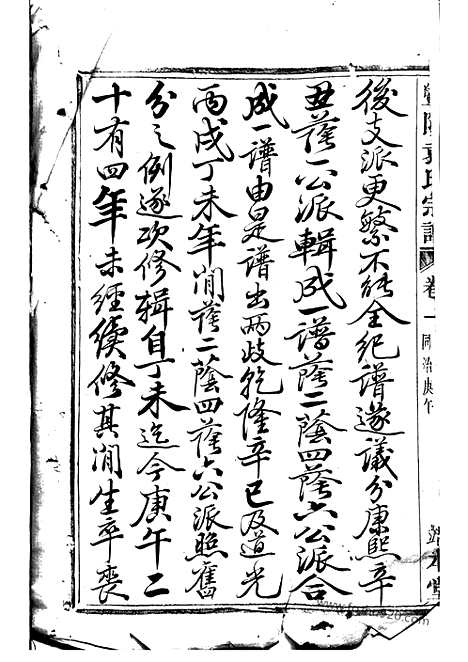 暨陽袁氏宗譜 卷一 同治庚午
後支派更繁不能全紀譜遂議分康熙辛
丑蔭一公派輯成一譜蔭二蔭四蔭六公派合
成一譜由是譜出兩歧乾隆辛巳及道光
丙戌丁未年間蔭二蔭四蔭六公派照舊
分之例遂次修輯自丁未迄今庚午二
十有四年未經續修其間生卒喪